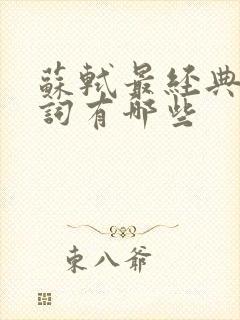 蘇軾最經典
詞有哪些
東八爺